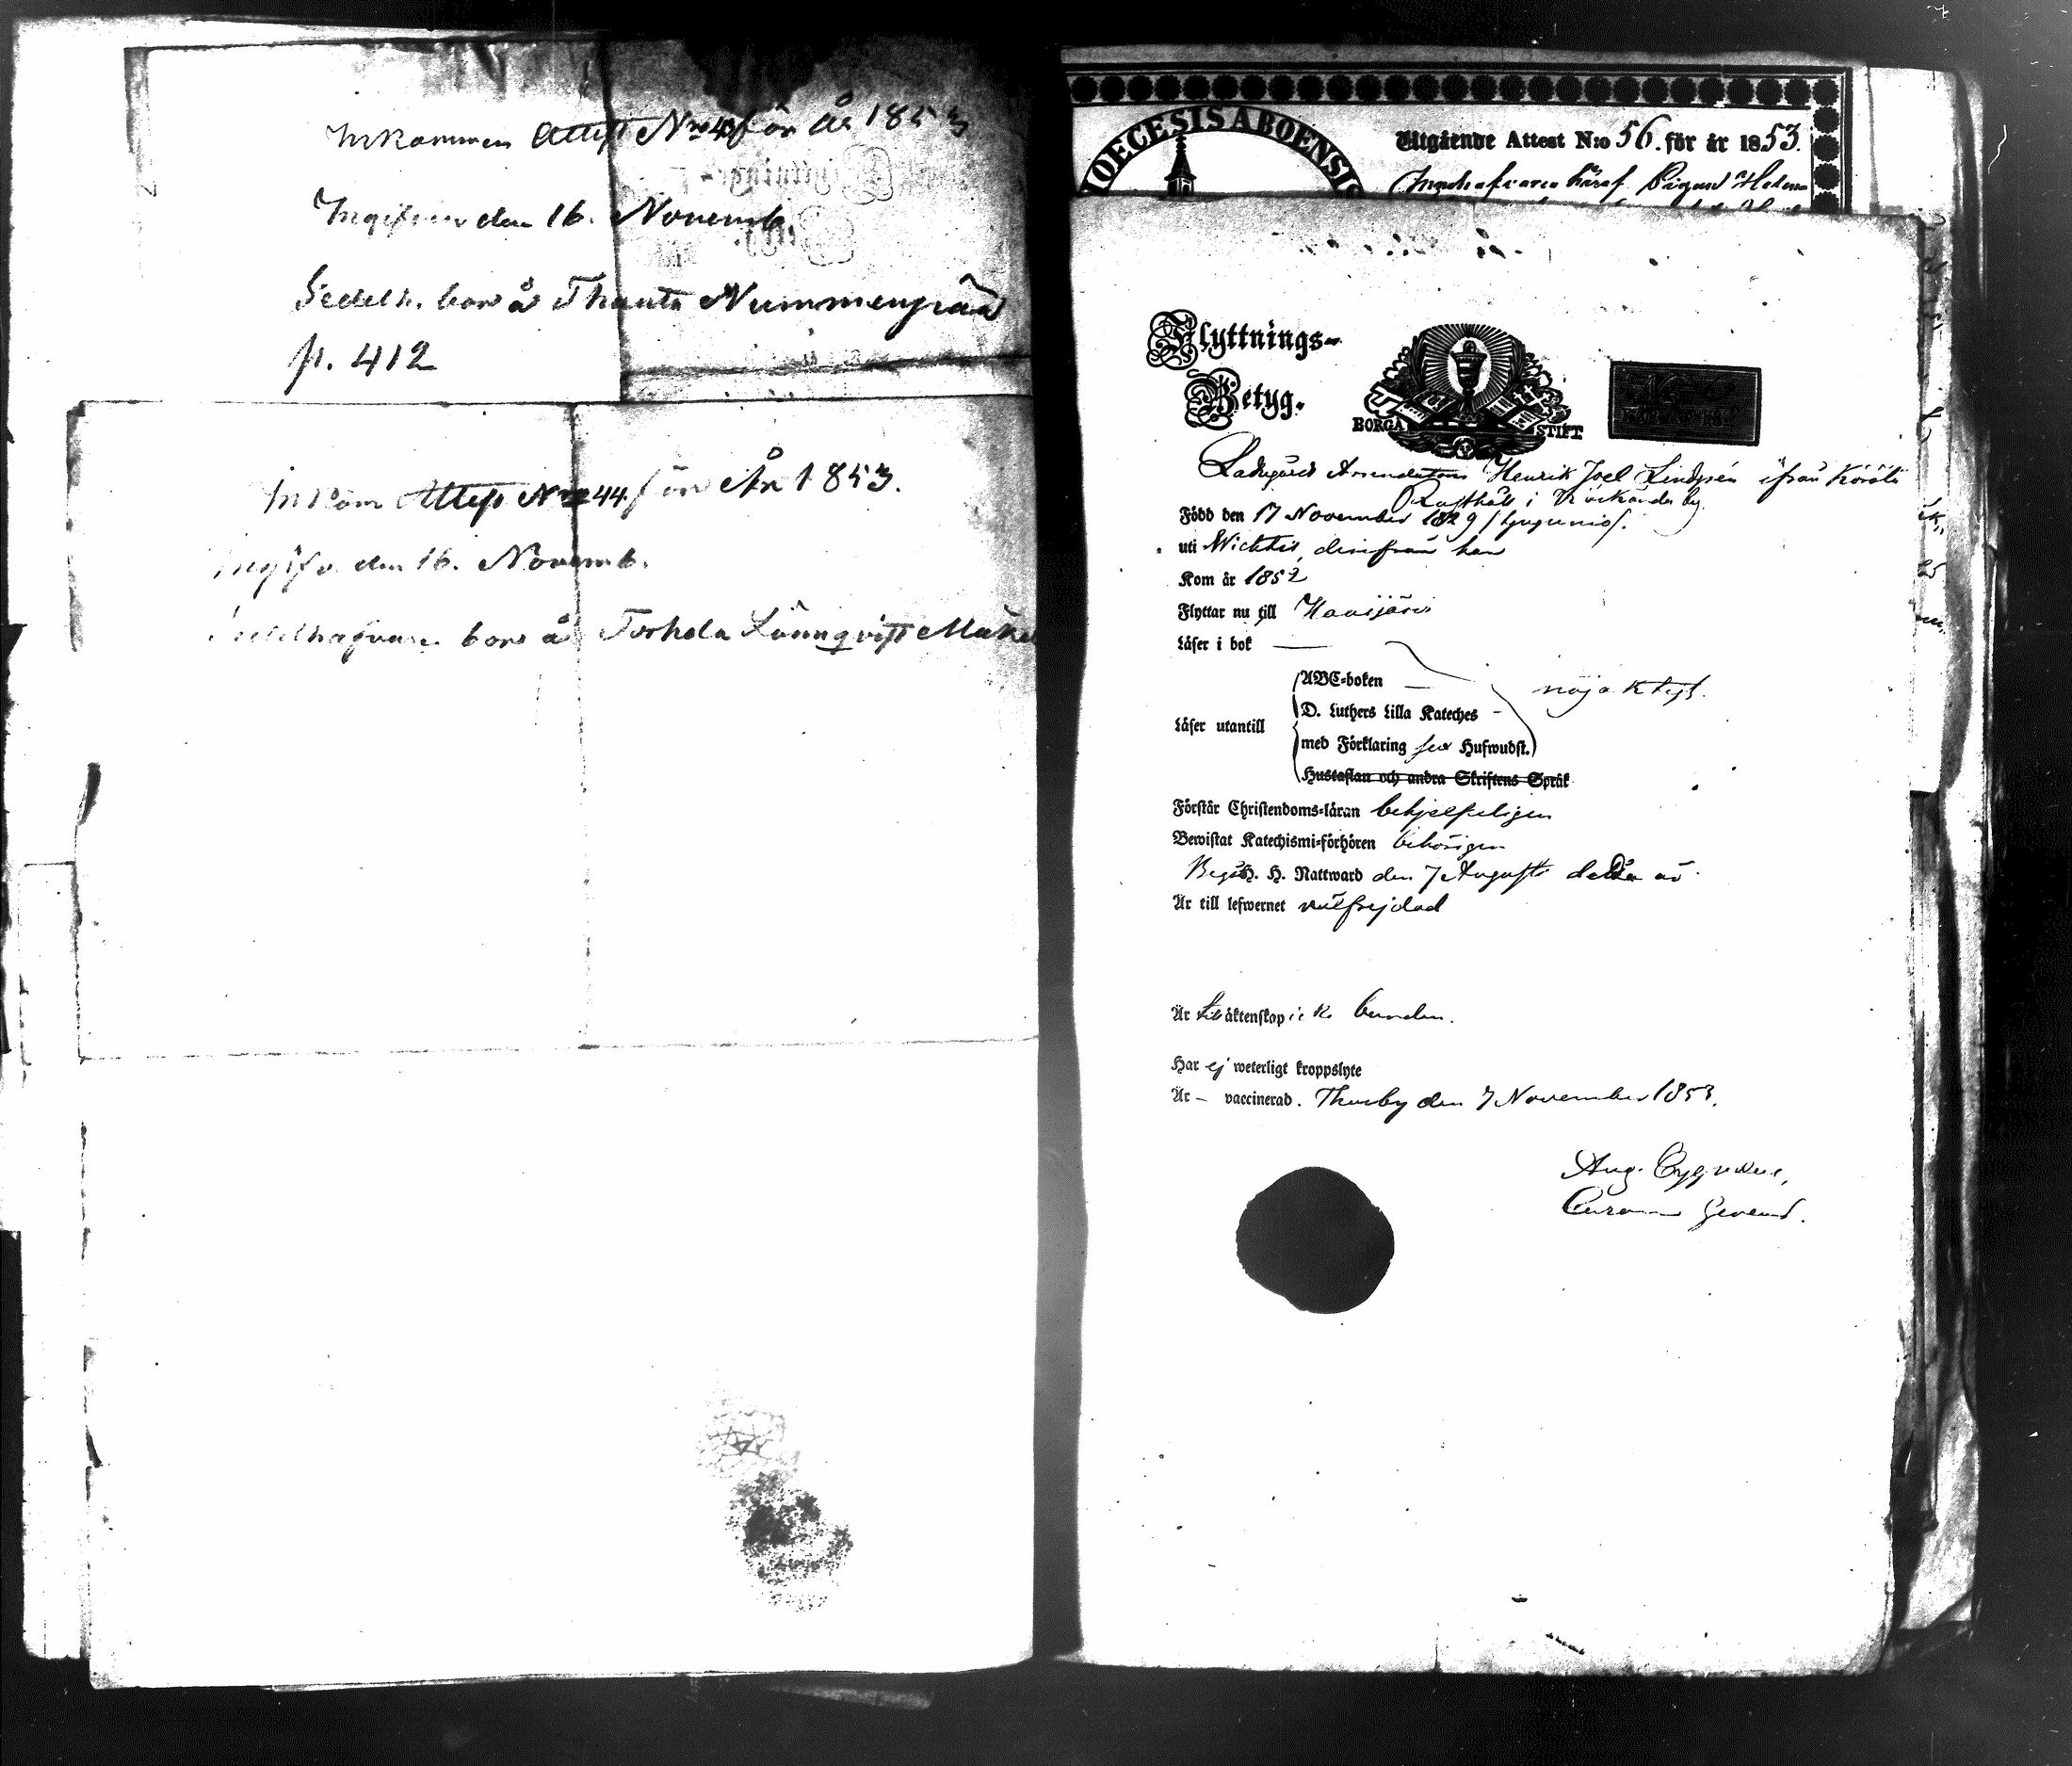 Inkommen Attest No 43 för År 1853
Ingifven den 16. Novemb.
Sedelh. bor å Nummenpää
p. 412
Inkom Attest No 44. för År 1853.
Ingifv. den 16. Novemb.
Sedelhafvaren bor å Torhola Lönnqvist
DIOECESIS ABOENSIS
Utgående Attest N:o 56. för år 1853.
Flyttnings-
Betyg.
BORGÅ STIFT
Ladugårds Arrendatorn Henrik Joel Lindgrén ifrån
Rusthåll i by.
Född den 17 November 1829 /tjugunio/.
uti Wichtis, derifrån han
Kom år 1852
Flyttar nu till
Läser i bok —
ABC-boken —
nöjaktigt.
D. Luthers Lilla Kateches -
Läser utantill
med Förklaring sex Hufwudst.
Hustaflan och andra Skriftens Språk
Förstår Christendoms-läran behjelpeligen
Bewistat Katechismi-förhören behörigen
Begått H. H. Nattward den 7 Augusti detta år.
Är till lefwernet välfrejdad
Är till äktenskap icke bunden.
Har ej weterligt kroppslyte
Är — vaccinerad. Thusby den 7 November 1853.
Aug. Cygnæus,